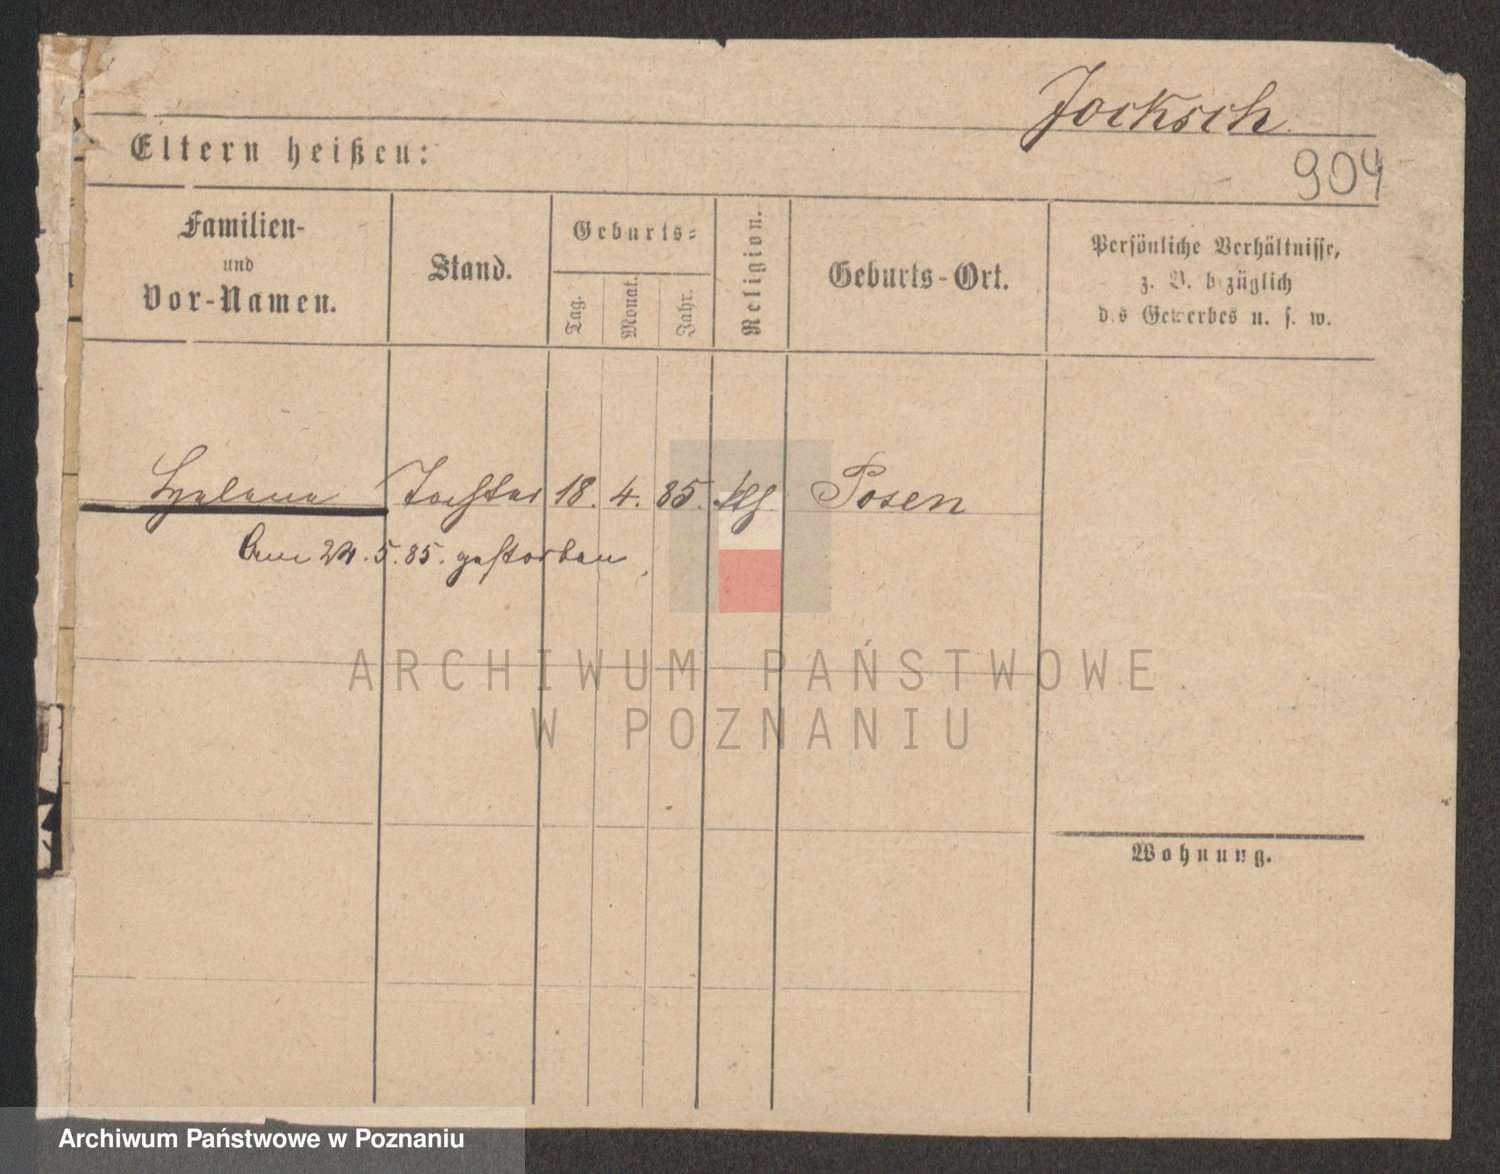 Jocksch
Eltern heißen:
904
Familien-
und
Vor-Namen.
Stand.
Geburts-
Tag.
Monat.
Jahr.
Religion.
Geburts-Ort.
Persönliche Verhältnisse,
z. B. bezüglich
des Gewerbes u. s. w.
Helene Tochter 18. 4. 85. kth Posen
Am 24. 5. 85. gestorben.
ARCHIWUM PAŃSTWOWE
W POZNANIU
Wohnung.
Archiwum Państwowe w Poznaniu